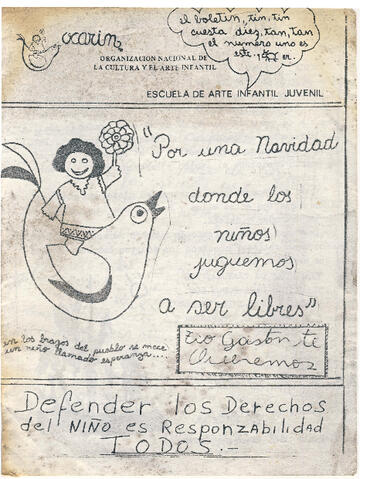 ocarin
ORGANIZACION NACIONAL DE
LA CULTURA Y EL ARTE INFANTIL
el boletin, tin, tin
cuesta diez, tan, tan
el numero uno es
este. y er.
ESCUELA DE ARTE INFANTIL JUVENIL
"Por una Navidad
donde los
niños
juguemos
a ser libres"
en los brazos del pueblo se mece
un niño llamado esperanza....
tio Gastón te
Queremos
Defender los Derechos
del NIÑO es RESPONZABILIDAD
TODOS.-